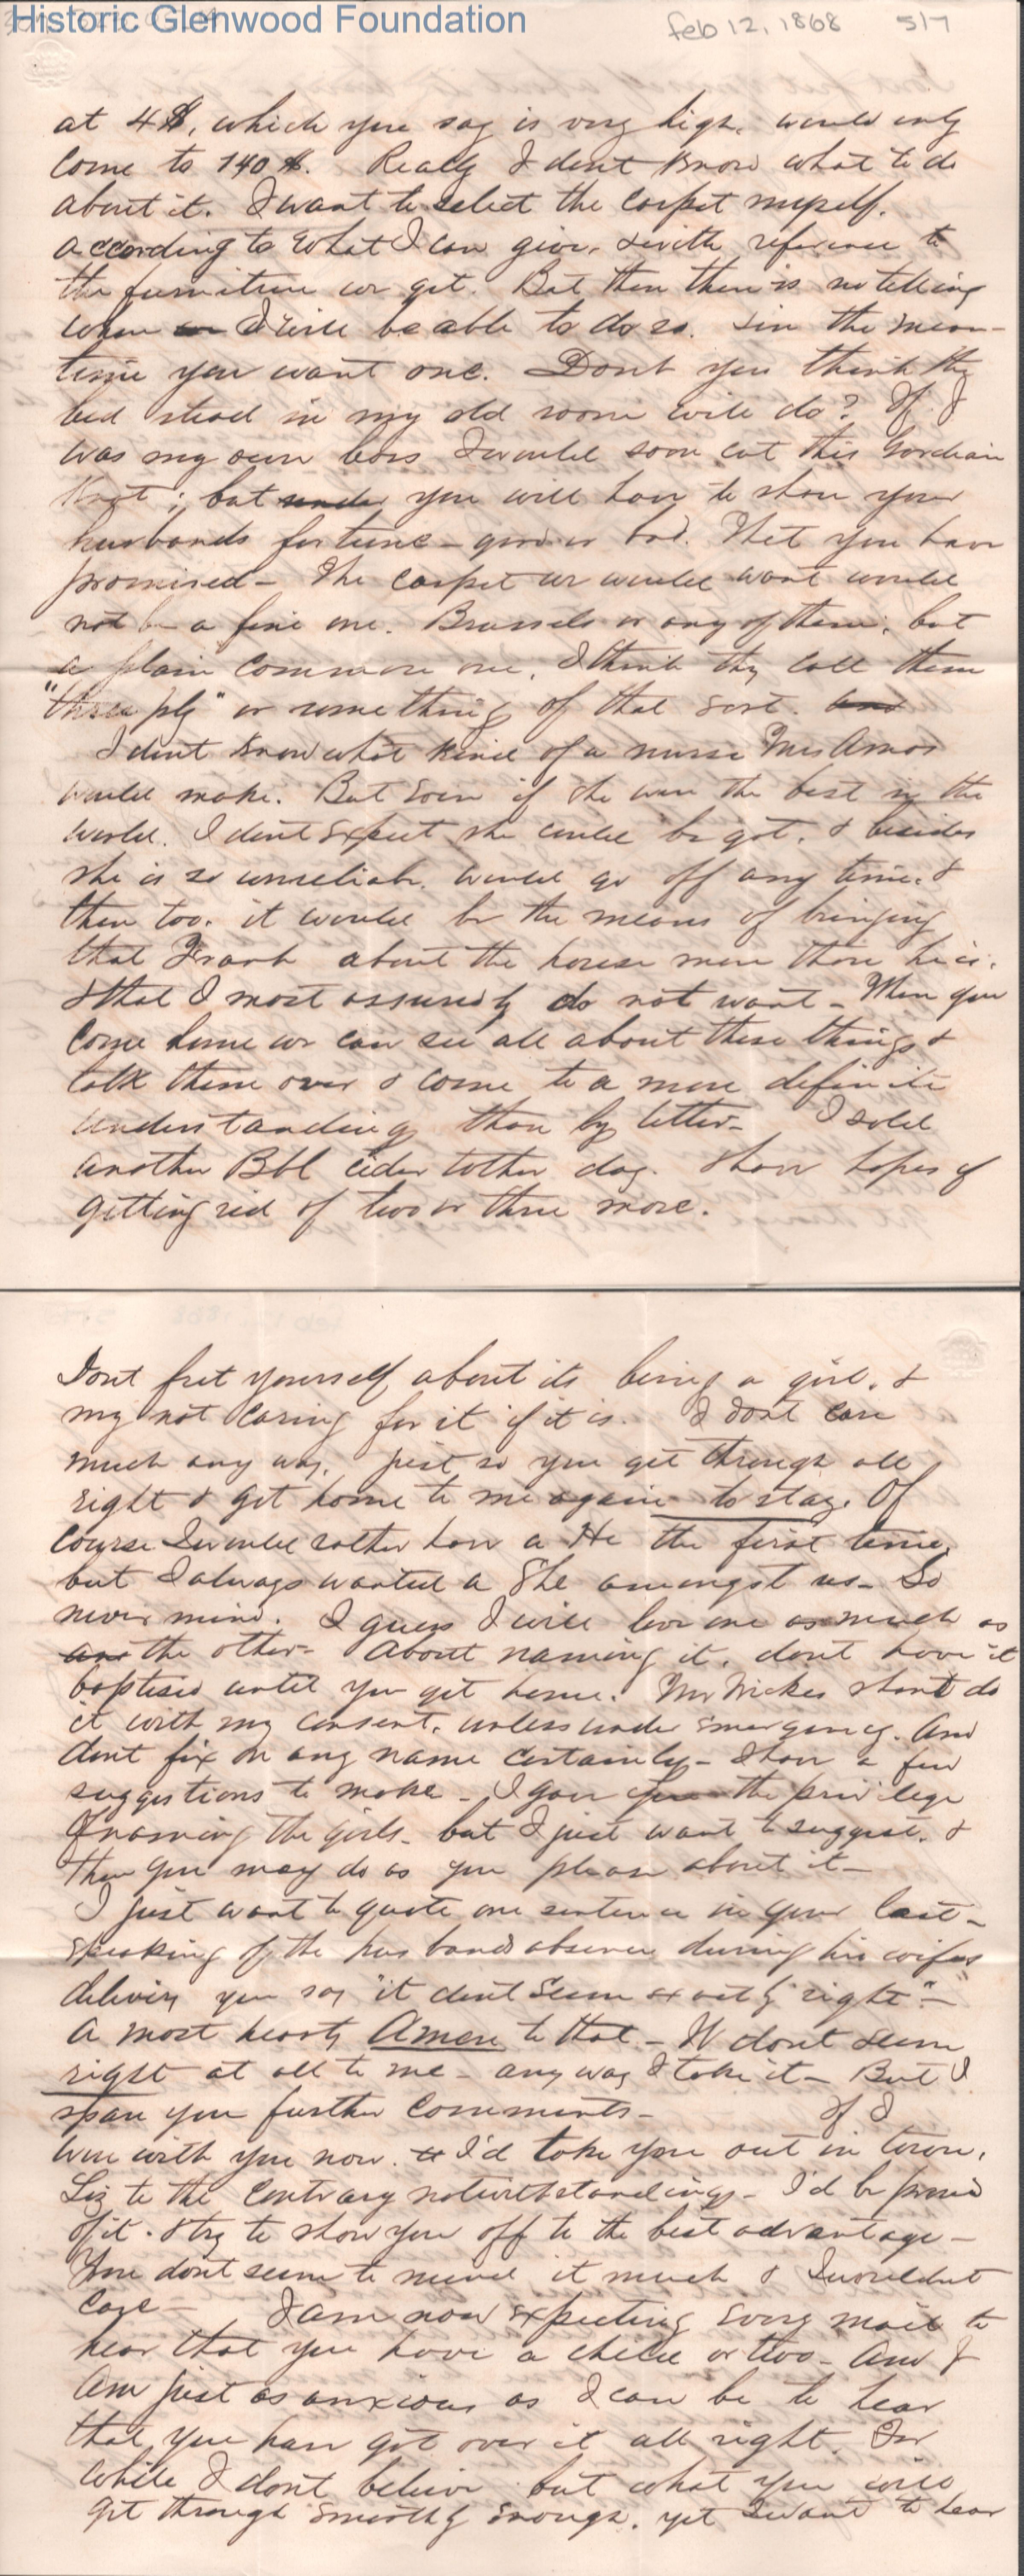 Historic Glenwood Foundation
Feb 12, 1868 5/7
at 4$, which you say is very high, would only
come to 140$. Really I dont know what to do
about it. I want to select the carpet myself.
according to what I can give, & with reference to
the furniture we get. But then there is no telling
when I will be able to do so. & in the mean-
time you want one. Dont you think the
bed stead in my old room will do? If I
was my own boss I would soon cut this Gordian
Knot; but under you will have to share your
husbands fortune – good or bad. That you have
promised – The carpet we would want would
not be a fine one. Brussels or any of them, but
a plain common one, I think they call them
"three ply" or something of that sort. and
I dont know what kind of a nurse Mrs Amos
would make. But even if she were the best in the
world. I dont expect she could be got, & besides
she is so unreliable, would go off any time. &
then too. it would be the means of bringing
that Frank about the house more than he is.
& that I most assuredly do not want – When you
come home we can see all about these things &
talk them over & come to a more definite
understanding than by letter – I sold
another Bbl cider tother day. & have hopes of
getting rid of two or three more.
Dont fret yourself about its being a girl, &
my not caring for it if it is. I dont care
much any way, just so you get through all
right & get home to me again to stay. Of
course I would rather have a He the first time,
but I always wanted a She amongst us – So
never mind. I guess I will love one as much as
the other – About naming it, dont have it
baptised until you get home. Mr Wickes shant do
it with my consent, unless under emergency. And
dont fix on any name certainly – I have a few
suggestions to make – I gave you the privilege
of naming the girls – but I just want to suggest, &
then you may do as you please about it –
I just want to quote one sentence in your last –
speaking of the husbands absence during his wifes
delivery you say "it dont seem exactly right" –
A most hearty Amen to that – It dont seem
right at all to me – any way I take it – But I
spare you further comments – If I
were with you now. I'd take you out in town,
Liz to the contrary notwithstanding – I'd be proud
of it. & try to show you off to the best advantage –
You dont seem to mind it much & I wouldnt
care – I am now expecting every mail to
hear that you have a child or two – And I
am just as anxious as I can be to hear
that you have got over it all right. For
while I dont believe but what you will
get through smoothly enough, yet I want to hear